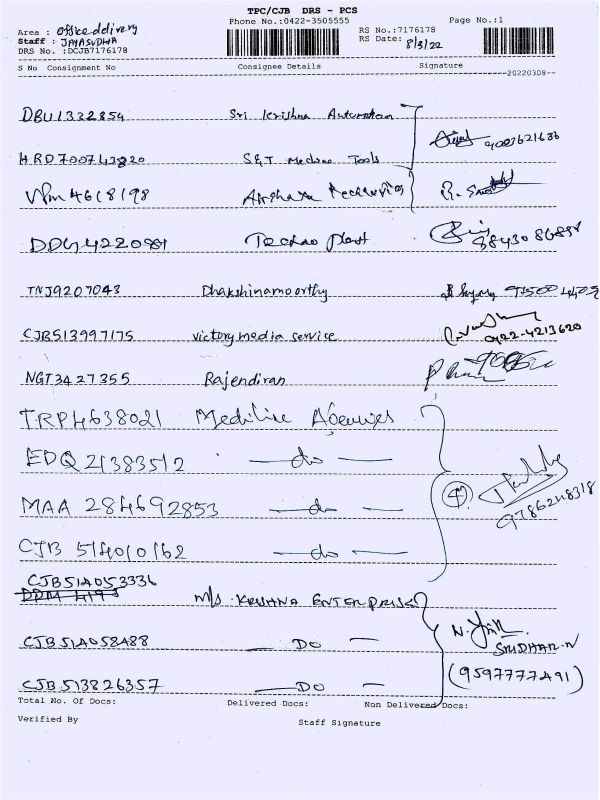 TPC/CJB DRS - PCS
Phone No.:0422-3505555 Page No.:1
Area : Office delivery RS No.:7176178
Staff : JAYASUDHA RS Date: 8/3/22
DRS No.:DCJB7176178
S No Consignment No Consignee Details Signature
20220308
DBU1332854 Sri Krishna Automation
HRD700743820 S&T Machine Tools 9003621636
VPM4618198 Akshara
DDG4220981 Techno Plast
TNJ9207043 Dhakshinamoorthy
CJB513997175 victory media service 0422-4213620
NGT3427355 Rajendiran
TRP4638021 Mediline Agencies
EDQ21383512 do
MAA 284692853 do
CJB 514010162 do 9786248318
CJB514053336
M/s KRISHNA ENTERPRISES
CJB514058488 DO SRIDHAR.N
CJB513826357 DO (9597777491)
Total No. Of Docs: Delivered Docs: Non Delivered Docs:
Verified By Staff Signature